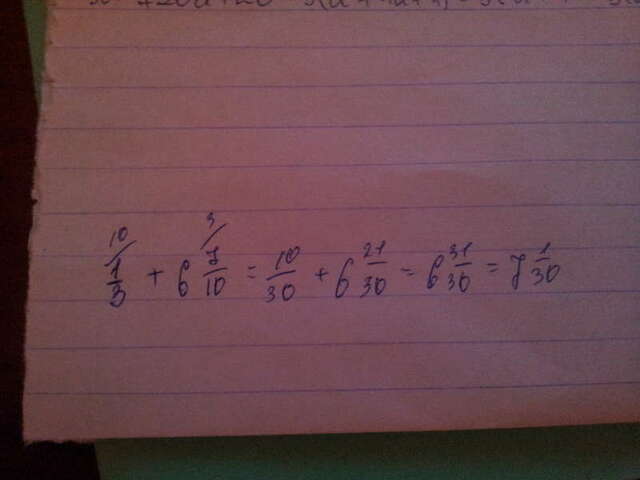 10/ 3/
1/3 + 6 7/10 = 10/30 + 6 21/30 = 6 31/30 = 7 1/30